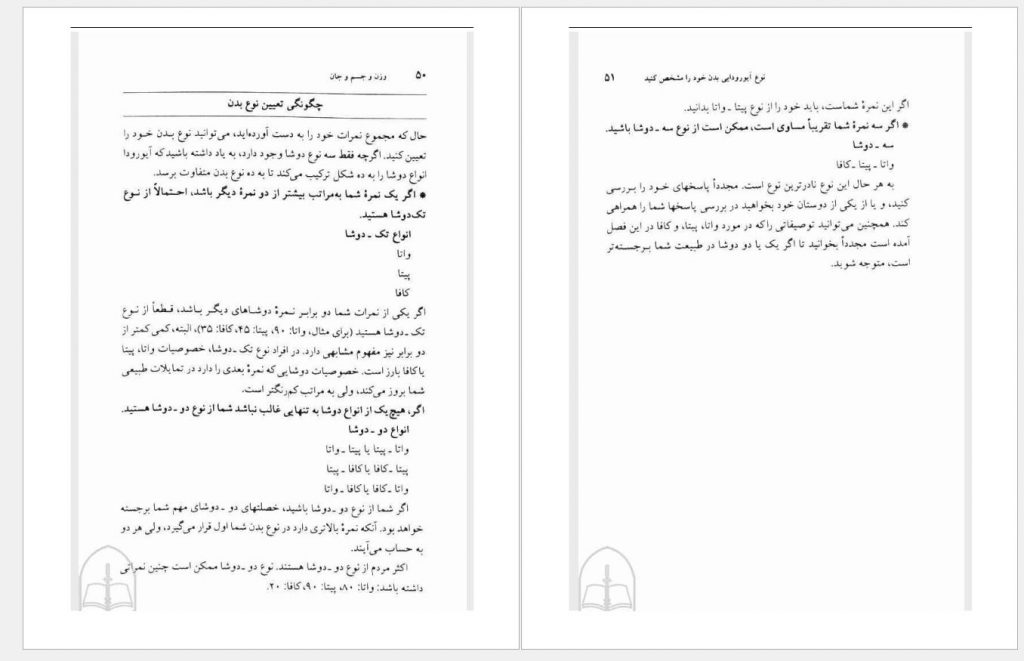 ۵۰ وزن و جسم و جان
چگونگی تعیین نوع بدن
حال که مجموع نمرات خود را به دست آورده‌اید، می‌توانید نوع بدن خود را
تعیین کنید. اگرچه فقط سه نوع دوشا وجود دارد، به یاد داشته باشید که آیورودا
انواع دوشا را به ده شکل ترکیب می‌کند تا به ده نوع بدن متفاوت برسد.
* اگر یک نمرهٔ شما به‌مراتب بیشتر از دو نمرهٔ دیگر باشد، احتمالاً از نوع
تک‌دوشا هستید.
انواع تک ـ دوشا
واتا
پیتا
کافا
اگر یکی از نمرات شما دو برابر نمرهٔ دوشاهای دیگر باشد، قطعاً از نوع
تک ـ دوشا هستید (برای مثال، واتا: ۹۰، پیتا: ۴۵، کافا: ۳۵)، البته، کمی کمتر از
دو برابر نیز مفهوم مشابهی دارد. در افراد نوع تک ـ دوشا، خصوصیات واتا، پیتا
یا کافا بارز است. خصوصیات دوشایی که نمرهٔ بعدی را دارد در تمایلات طبیعی
شما بروز می‌کند، ولی به مراتب کم‌رنگتر است.
اگر، هیچ‌یک از انواع دوشا به تنهایی غالب نباشد شما از نوع دو ـ دوشا هستید.
انواع دو ـ دوشا
واتا ـ پیتا یا پیتا ـ واتا
پیتا ـ کافا یا کافا ـ پیتا
واتا ـ کافا یا کافا ـ واتا
اگر شما از نوع دو ـ دوشا باشید، خصلتهای دو ـ دوشای مهم شما برجسته
خواهد بود. آنکه نمرهٔ بالاتری دارد در نوع بدن شما اول قرار می‌گیرد، ولی هر دو
به حساب می‌آیند.
اکثر مردم از نوع دو ـ دوشا هستند. نوع دو ـ دوشا ممکن است چنین نمراتی
داشته باشد: واتا: ۸۰، پیتا: ۹۰، کافا: ۲۰.
نوع آیورودایی بدن خود را مشخص کنید ۵۱
اگر این نمرهٔ شماست، باید خود را از نوع پیتا ـ واتا بدانید.
* اگر سه نمرهٔ شما تقریباً مساوی است، ممکن است از نوع سه ـ دوشا باشید.
سه ـ دوشا
واتا ـ پیتا ـ کافا
به هر حال این نوع نادرترین نوع است. مجدداً پاسخهای خود را بررسی
کنید، و یا از یکی از دوستان خود بخواهید در بررسی پاسخها شما را همراهی
کند. همچنین می‌توانید توصیفاتی را که در مورد واتا، پیتا، و کافا در این فصل
آمده است مجدداً بخوانید تا اگر یک یا دو دوشا در طبیعت شما برجسته‌تر
است، متوجه شوید.